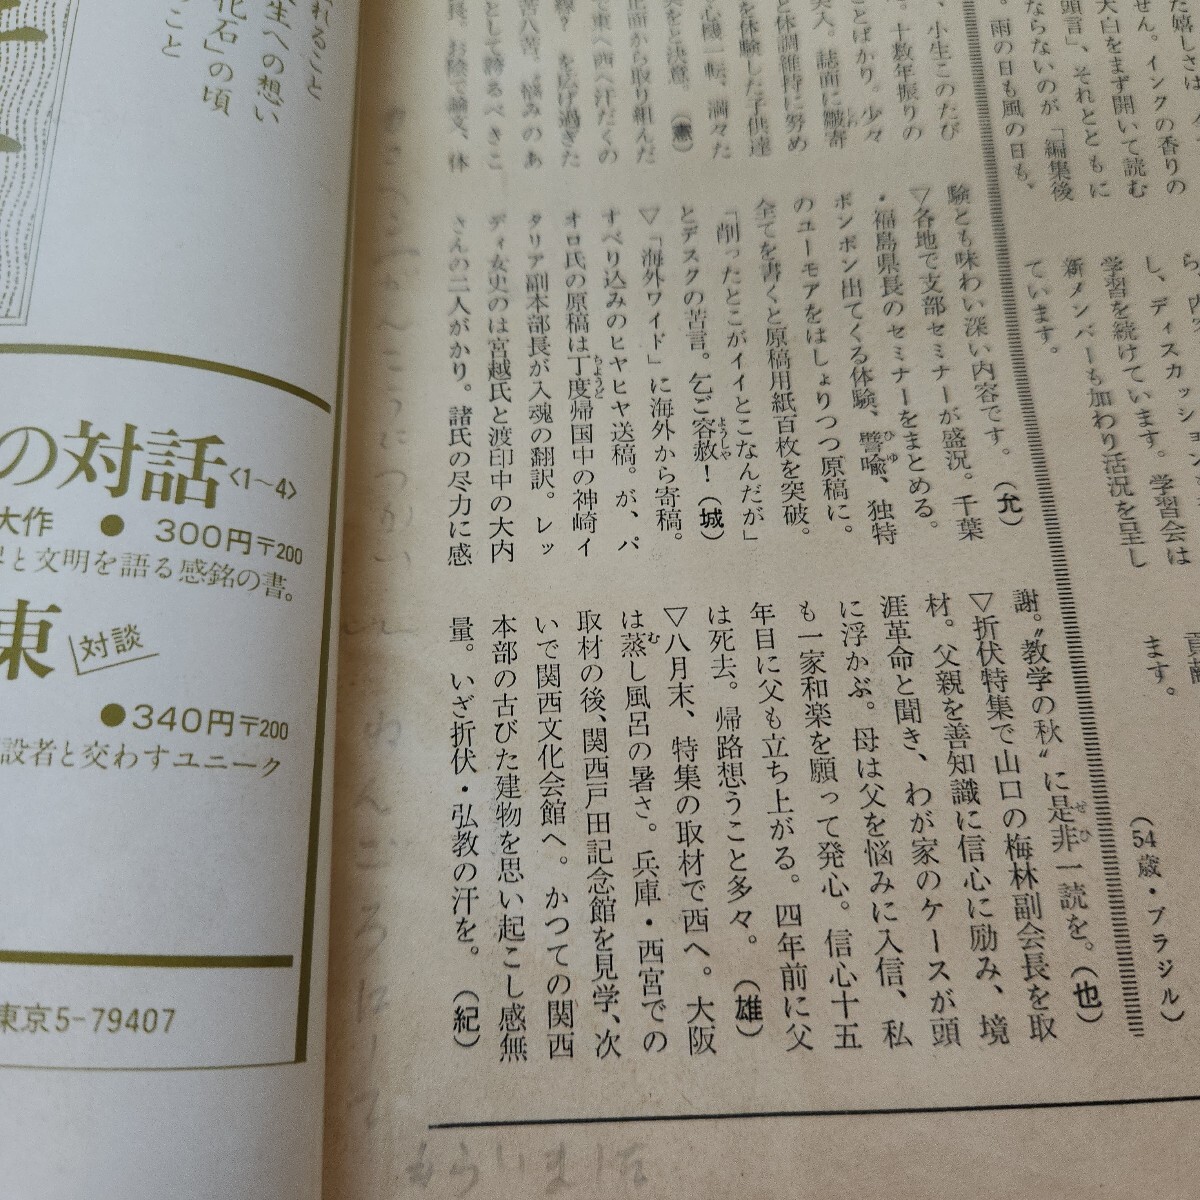 た嬉しさは
せん。インクの香りの
大白をまず開いて読む
頭言」、それとともに
ならないのが「編集後
雨の日も風の日も、
ら、内容
し、ディスカッション
学習を続けています。学習会は
新メンバーも加わり活況を呈し
ています。
貢献
ます。
(54歳・ブラジル)
、小生このたび
ことばかり。少々
。十数年振りの
突入。誌面に皺寄
と体調維持に努め
を体験した子供達
心機一転、満々た
突をと決意。(憲)
正面から取り組んだ
で東へ西へ汗だくの
線?を広げ過ぎた
苦八苦。悩みのあ
ことして誇るべきこ
長。お陰で論文、体
験とも味わい深い内容です。(允)
▽各地で支部セミナーが盛況。千葉
・福島県長のセミナーをまとめる。
ポンポン出てくる体験、譬喩、独特
のユーモアをはしょりつつ原稿に。
全てを書くと原稿用紙百枚を突破。
「削ったとこがイイとこなんだが」
とデスクの苦言。乞ご容赦!(城)
▽「海外ワイド」に海外から寄稿。
すべり込みのヒヤヒヤ送稿。が、パ
オロ氏の原稿は丁度帰国中の神崎イ
タリア副本部長が入魂の翻訳。レッ
ディ女史のは宮越氏と渡印中の大内
さんの二人がかり。諸氏の尽力に感
謝。〝教学の秋〟に是非一読を。(也)
▽折伏特集で山口の梅林副会長を取
材。父親を善知識に信心に励み、境
涯革命と聞き、わが家のケースが頭
に浮かぶ。母は父を悩みに入信、私
も一家和楽を願って発心。信心十五
年目に父も立ち上がる。四年前に父
は死去。帰路想うこと多々。(雄)
▽八月末、特集の取材で西へ。大阪
は蒸し風呂の暑さ。兵庫・西宮での
取材の後、関西戸田記念館を見学、次
いで関西文化会館へ。かつての関西
本部の古びた建物を思い起こし感無
量。いざ折伏・弘教の汗を。(紀)
もらいました
れること
生への想い
化石」の頃
こと
の対話〈1〜4〉
大作 ●300円〒200
と文明を語る感銘の書。
東 対談
●340円〒200
設者と交わすユニーク
東京5-79407